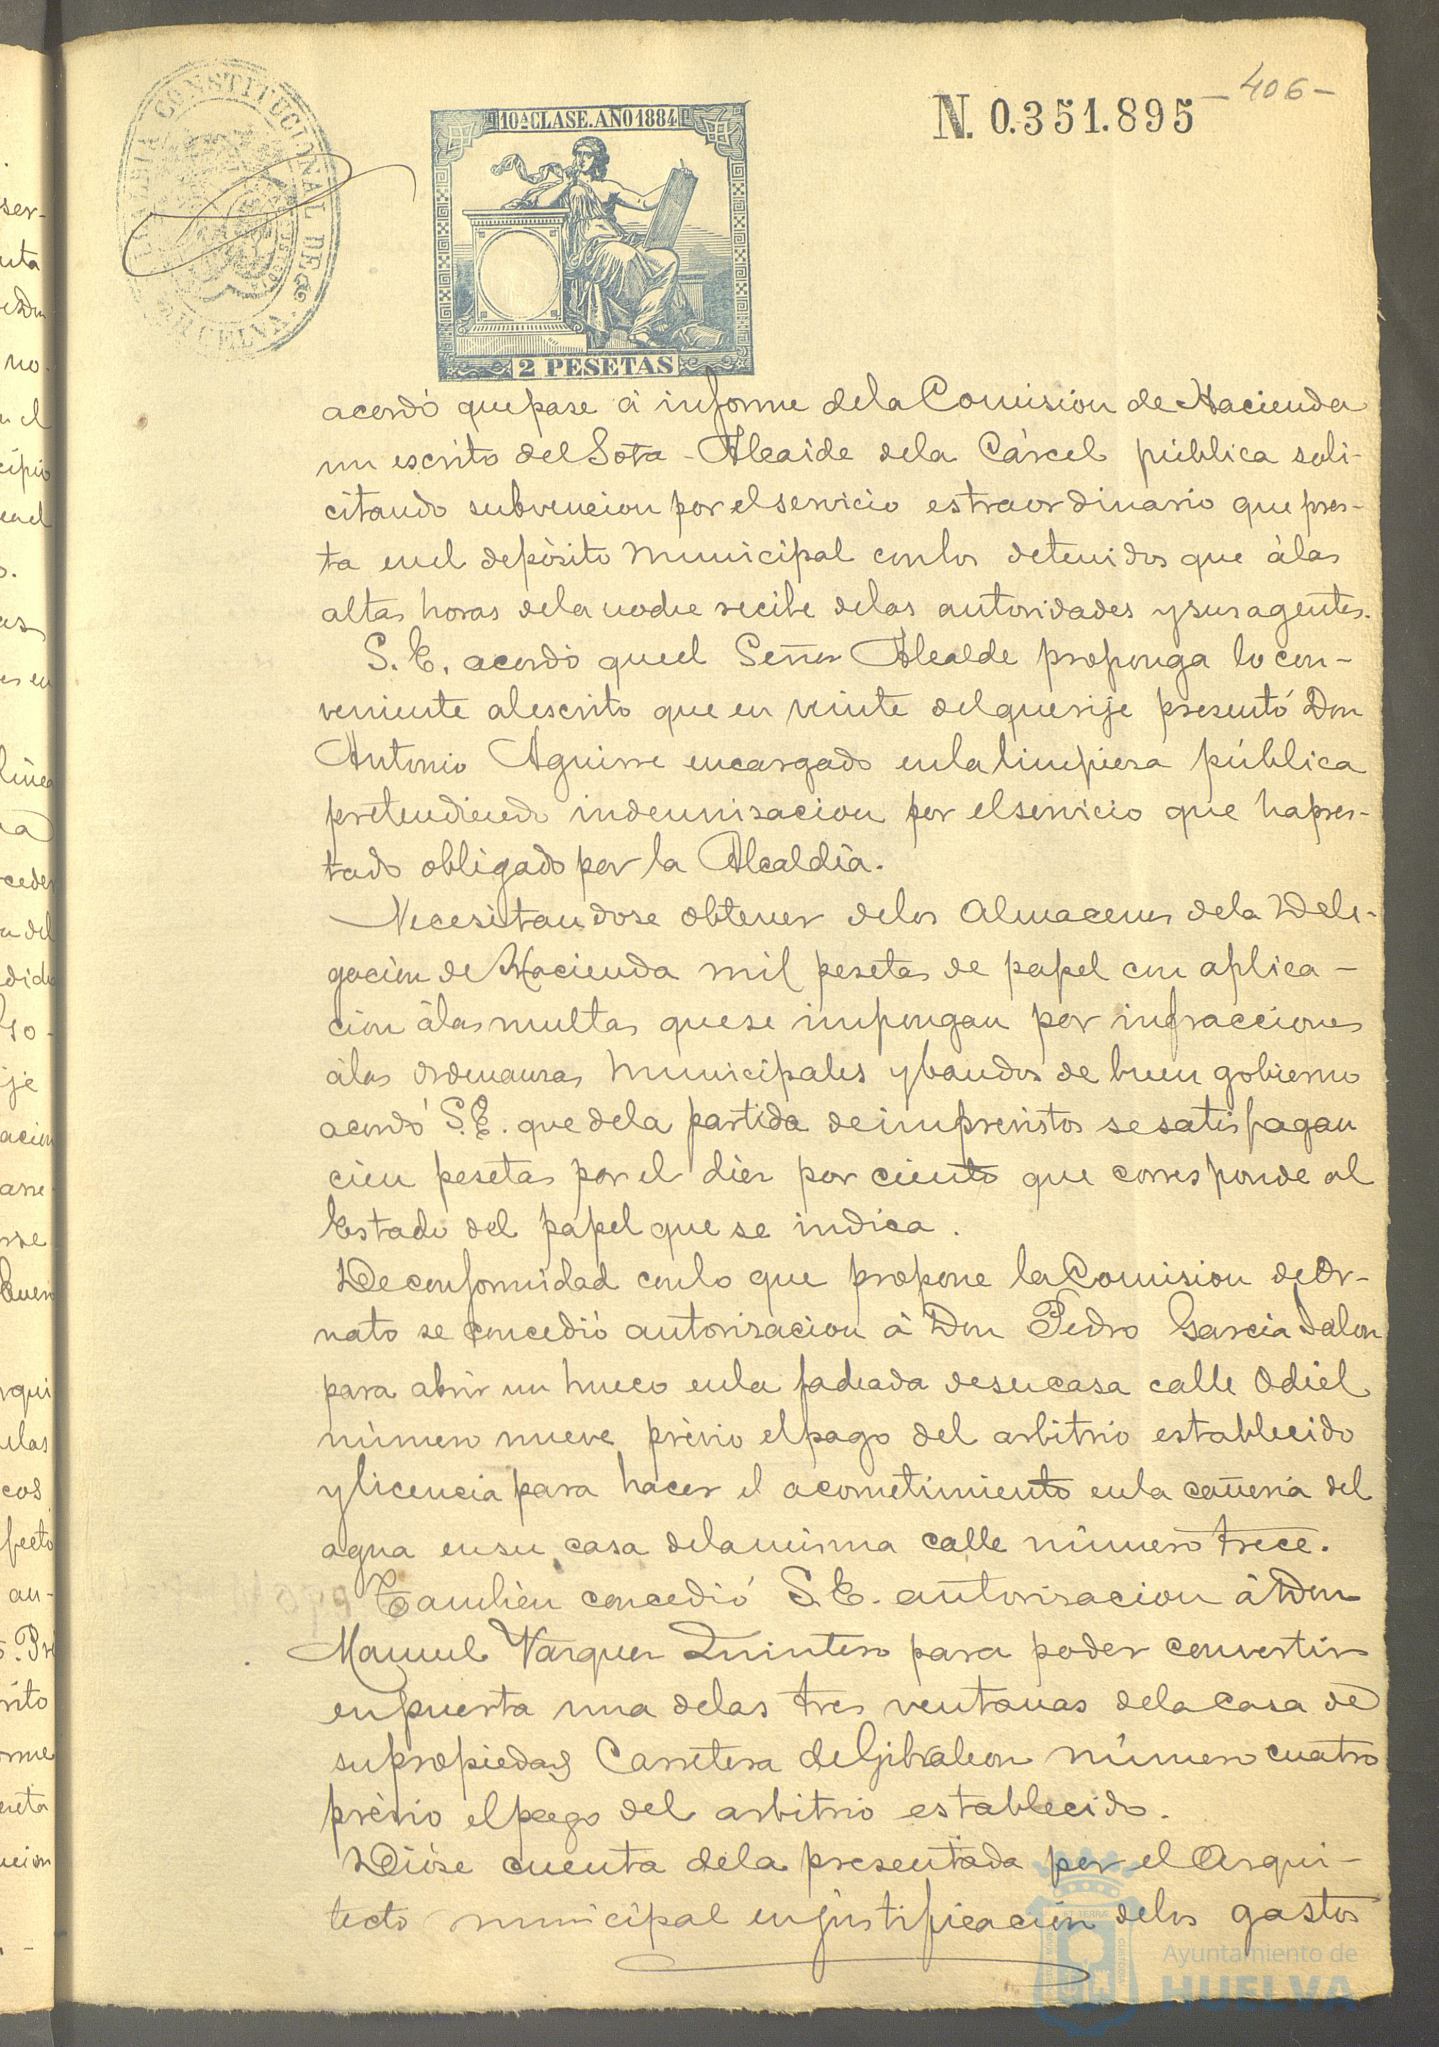 - 406 -
N. 0.351.895
ALCALDIA CONSTITUCIONAL DE HUELVA
10ª CLASE. AÑO 1884
2 PESETAS
acordó que pase á informe dela Comisión de Hacienda
un escrito del Sota-Alcaide dela Cárcel pública soli-
citando subvencion por el servicio estraordinario que pres-
ta en el depósito municipal con los detenidos que á las
altas horas dela noche recibe delas autoridades y sus agentes.
S. E. acordó que el Señor Alcalde proponga lo con-
veniente al escrito que en veinte del que rije presentó Don
Antonio Aguirre encargado en la limpiesa pública
pretendiendo indennisacion por el servicio que ha pres-
tado obligado por la Alcaldía.
Necesitandose obtener delos Almacenes dela Dele-
gación de Hacienda mil pesetas de papel con aplica-
ción á las multas que se impongan por infracciones
á las ordenansas municipales y bandos de buen gobierno
acordó S.E. que dela partida de imprevistos se satisfagan
cien pesetas por el dies por ciento que corresponde al
Estado del papel que se indica.
De conformidad con lo que propone la Comision de Or-
nato se concedió autorisacion á Don Pedro Garcia Jalon
para abrir un hueco en la fachada de su casa calle Odiel
número nueve, prévio el pago del arbitrio establecido
y licencia para hacer el acometimiento en la cañería del
agua en su casa dela misma calle número trece.
Tambien concedió S. E. autorisacion á Don
Manuel Vasques Quintero para poder convertir
en puerta una delas tres ventanas dela casa de
su propiedad Carretera de Gibraleon número cuatro
prévio el pago del arbitrio establecido.
Dióse cuenta dela presentada por el Arqui-
tecto municipal en justificación delos gastos
Ayuntamiento de
HUELVA